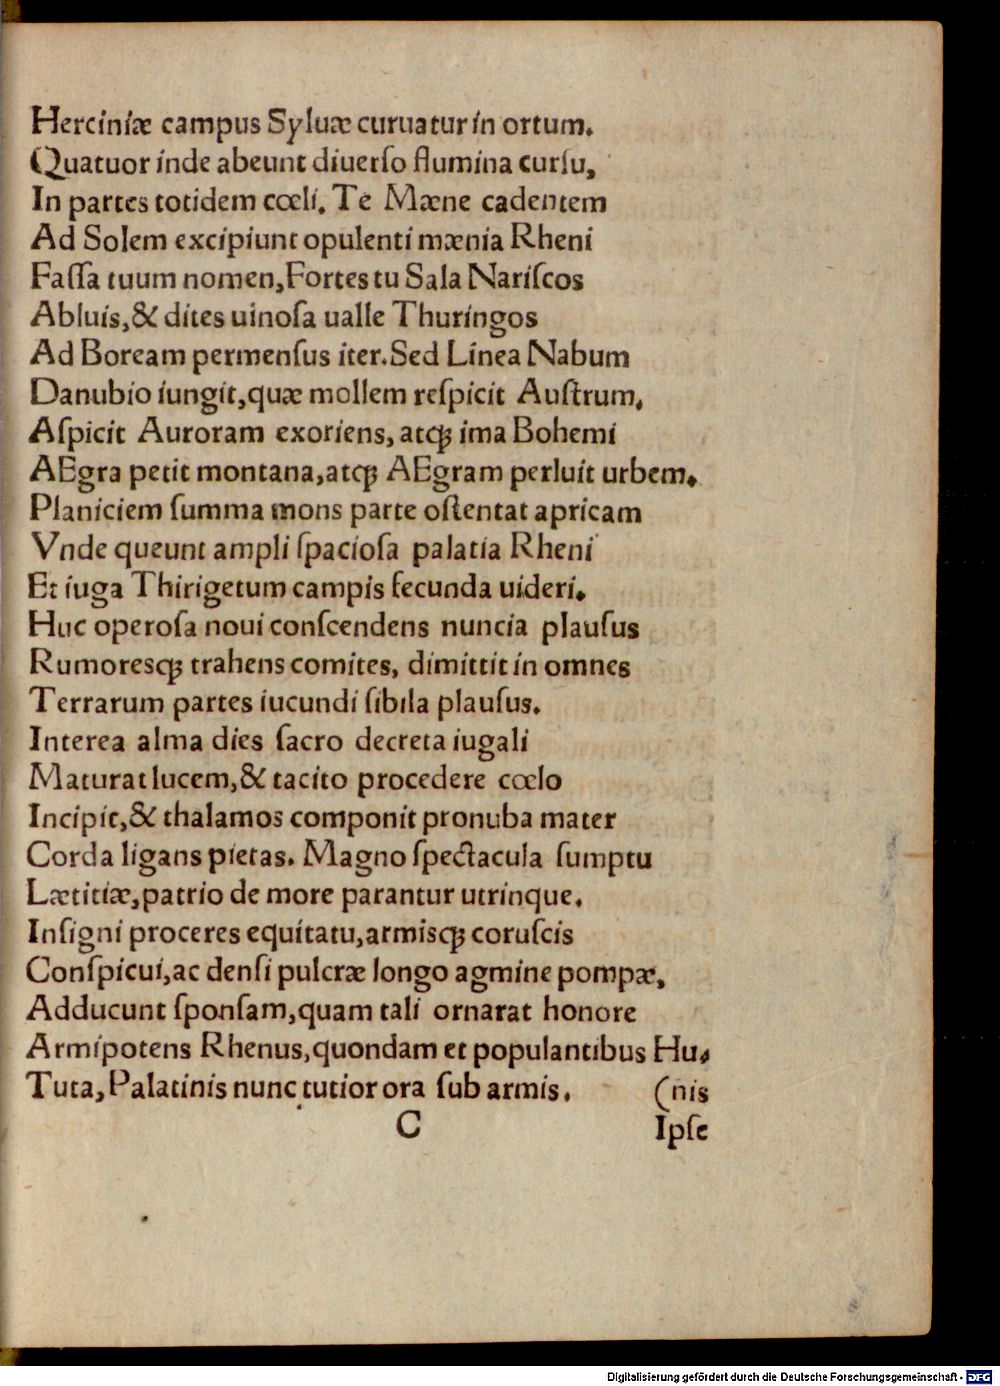 Herciniæ campus Syluæ curuatur in ortum.
Quatuor inde abeunt diuerſo flumina curſu,
In partes totidem cœli. Te Mæne cadentem
Ad Solem excipiunt opulenti mænia Rheni
Faſſa tuum nomen, Fortes tu Sala Nariſcos
Abluis, & dites uinoſa ualle Thuringos
Ad Boream permenſus iter. Sed Linea Nabum
Danubio iungit, quæ mollem reſpicit Auſtrum,
Aſpicit Auroram exoriens, atqꝫ ima Bohemi
AEgra petit montana, atqꝫ AEgram perluit urbem.
Planiciem ſumma mons parte oſtentat apricam
Vnde queunt ampli ſpacioſa palatia Rheni
Et iuga Thirigetum campis fecunda uideri.
Huc operoſa noui conſcendens nuncia plauſus
Rumoresqꝫ trahens comites, dimittit in omnes
Terrarum partes iucundi ſibila plauſus.
Interea alma dies ſacro decreta iugali
Maturat lucem, & tacito procedere cœlo
Incipit, & thalamos componit pronuba mater
Corda ligans pietas. Magno ſpectacula ſumptu
Lætitiæ, patrio de more parantur utrinque.
Inſigni proceres equitatu, armisqꝫ coruſcis
Conſpicui, ac denſi pulcræ longo agmine pompæ,
Adducunt ſponſam, quam tali ornarat honore
Armipotens Rhenus, quondam et populantibus Hu-
Tuta, Palatinis nunc tutior ora ſub armis. (nis
C Ipſe
Digitalisierung gefördert durch die Deutsche Forschungsgemeinschaft - DFG